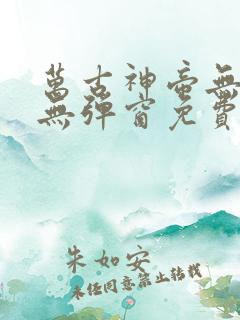 萬古神帝無
無彈窗免費
朱如安
未經同意禁止轉載